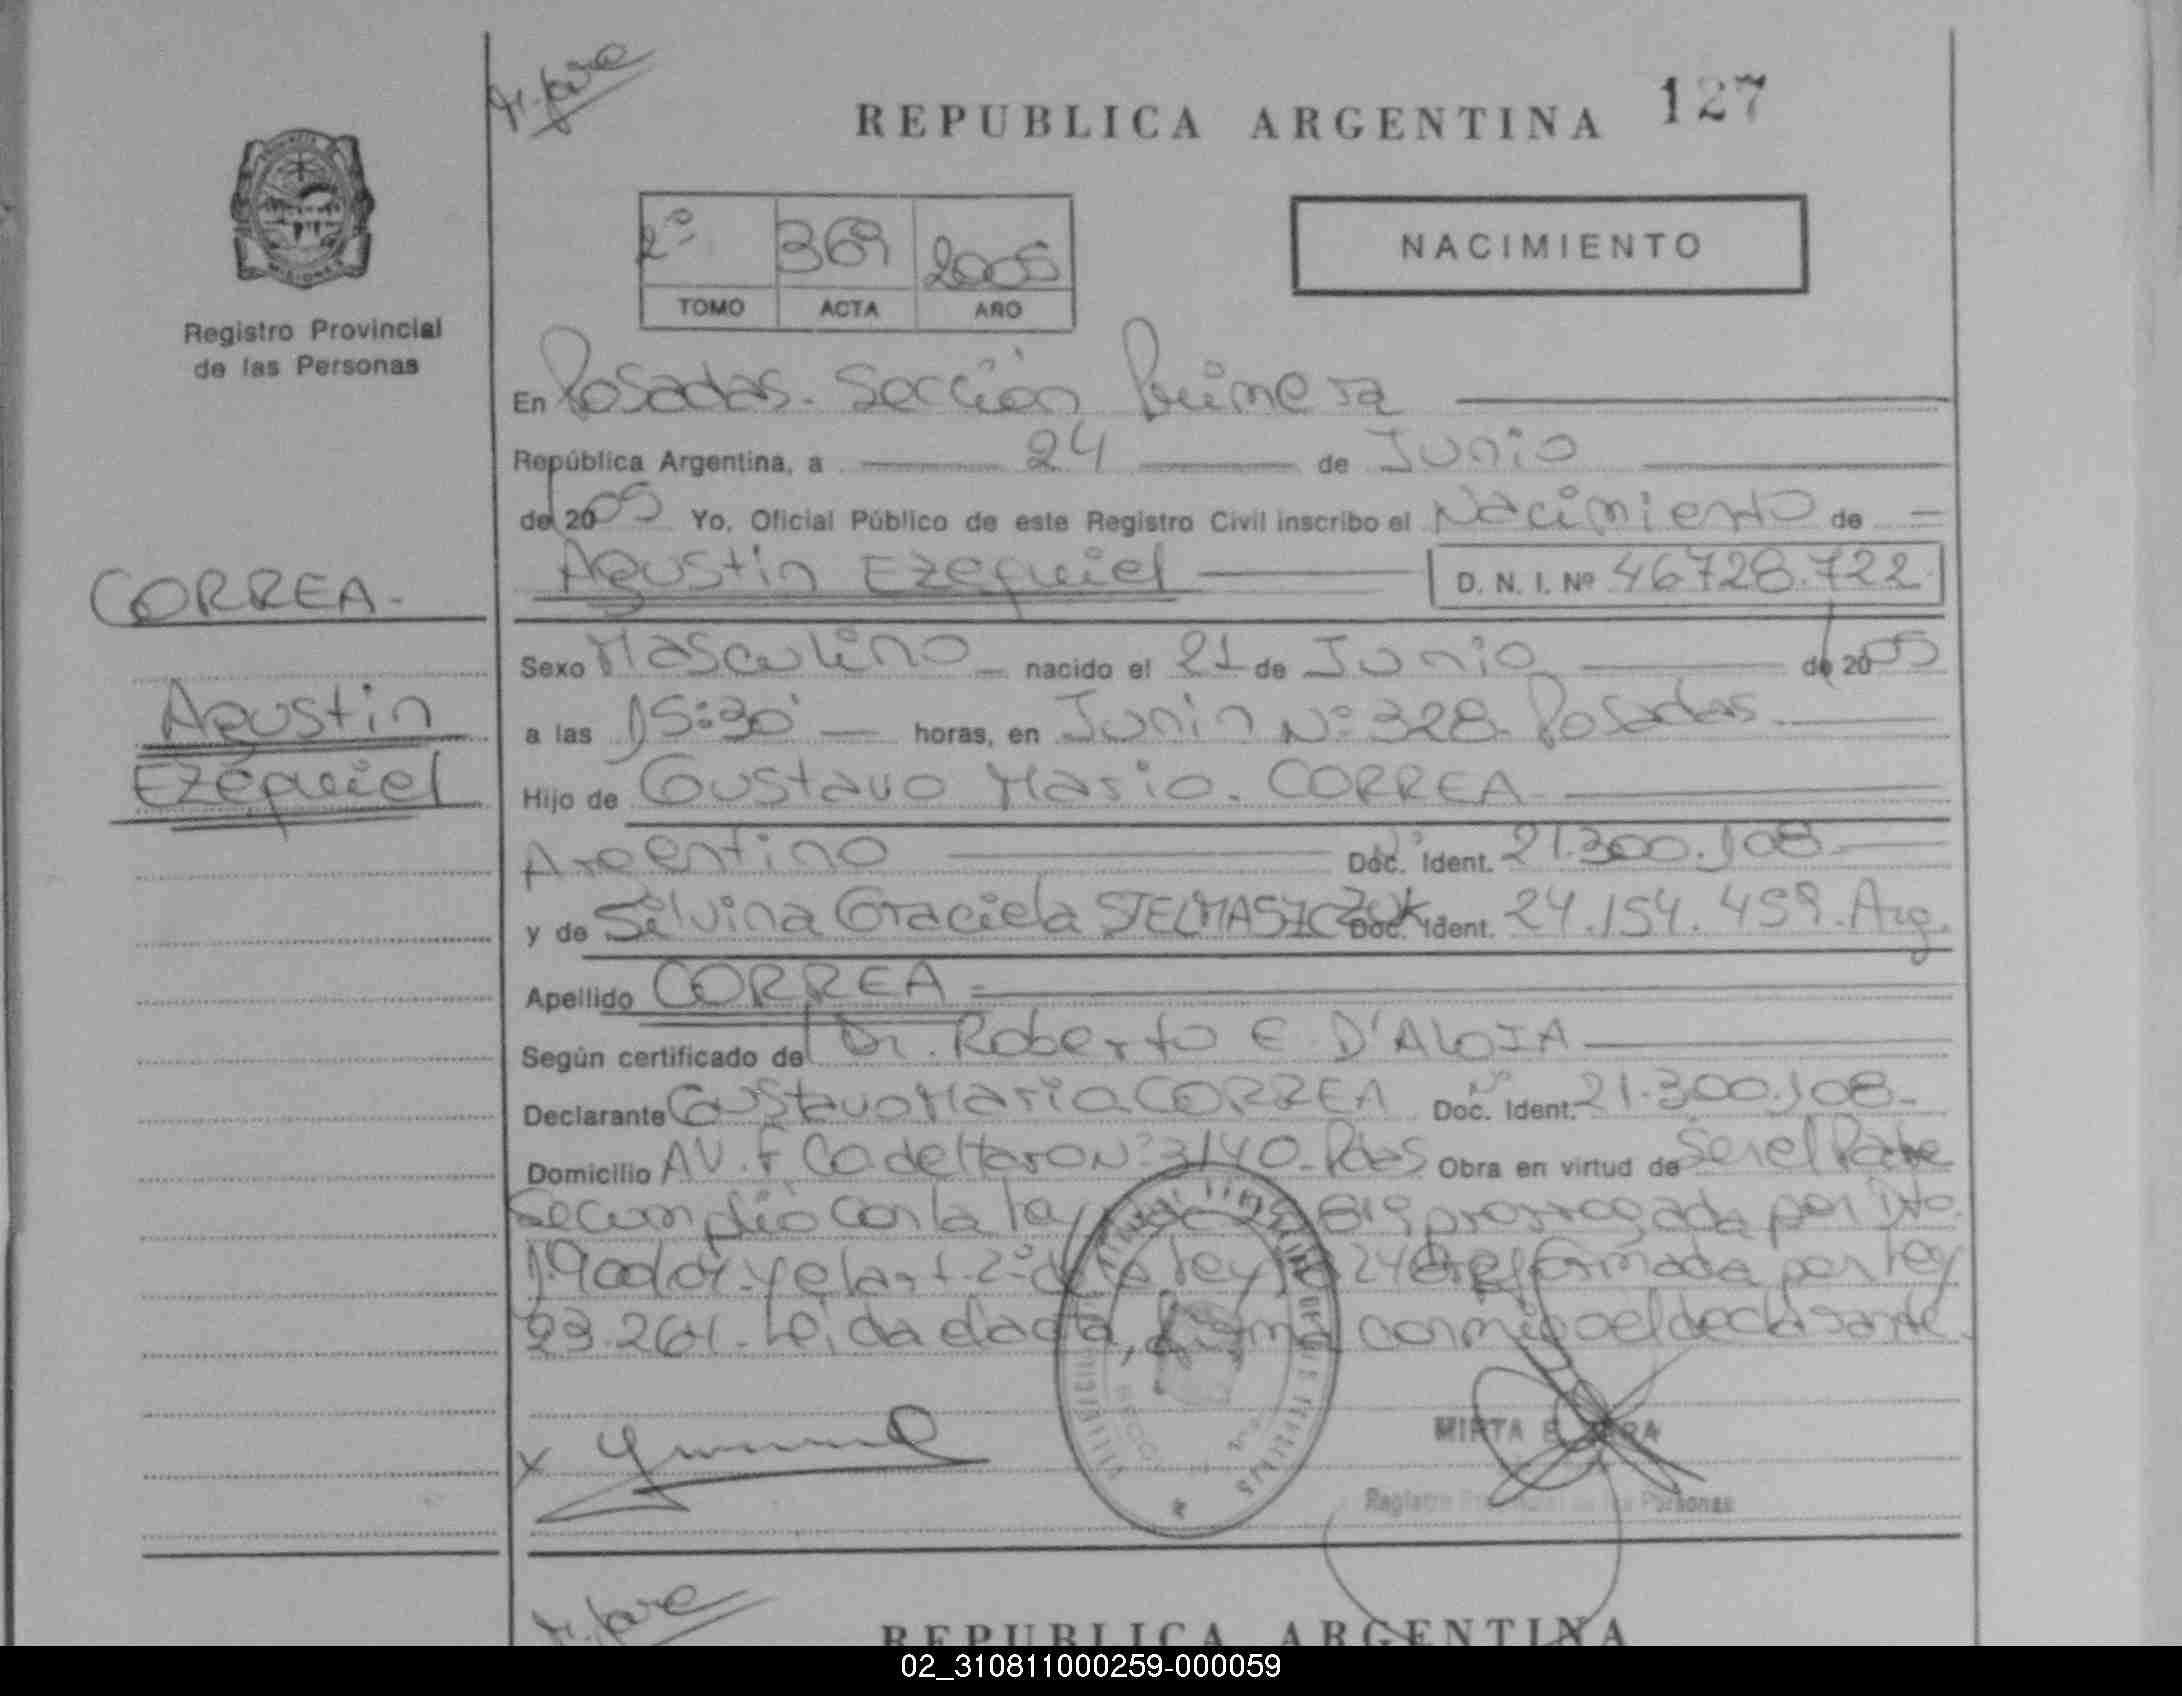 REPUBLICA ARGENTINA 127
MISIONES
Registro Provincial
de las Personas
2º 369 2005
TOMO ACTA AÑO
NACIMIENTO
En Posadas. Sección Primera
República Argentina, a 24 de Junio
de 2005 Yo, Oficial Público de este Registro Civil inscribo el Nacimiento de
Agustin Ezequiel D. N. I. Nº 46728.722
CORREA.
Agustin
Ezequiel
Sexo Masculino nacido el 21 de Junio de 2005
a las 15:30 horas, en Junin Nº 328. Posadas
Hijo de Gustavo Mario. CORREA
Argentino Doc. Ident. 21.300.108
y de Silvina Graciela STELMASZCZUK Doc. Ident. 24.154.459. Arg.
Apellido CORREA
Según certificado de Dr. Roberto E. D'ALOIA
Declarante Gustavo Mario CORREA Doc. Ident. Nº 21.300.108
Domicilio AV. F. Nº 3140. Pdas Obra en virtud de Ser el Padre
Se cumplió con la 819 prorrogada por Dto.
y el art. 2º de la ley reformada por ley
23.264. Leida el acta, firma conmigo el declarante.
MIRTA E.
Registro Provincial de las Personas
REPUBLICA ARGENTINA
02_310811000259-000059